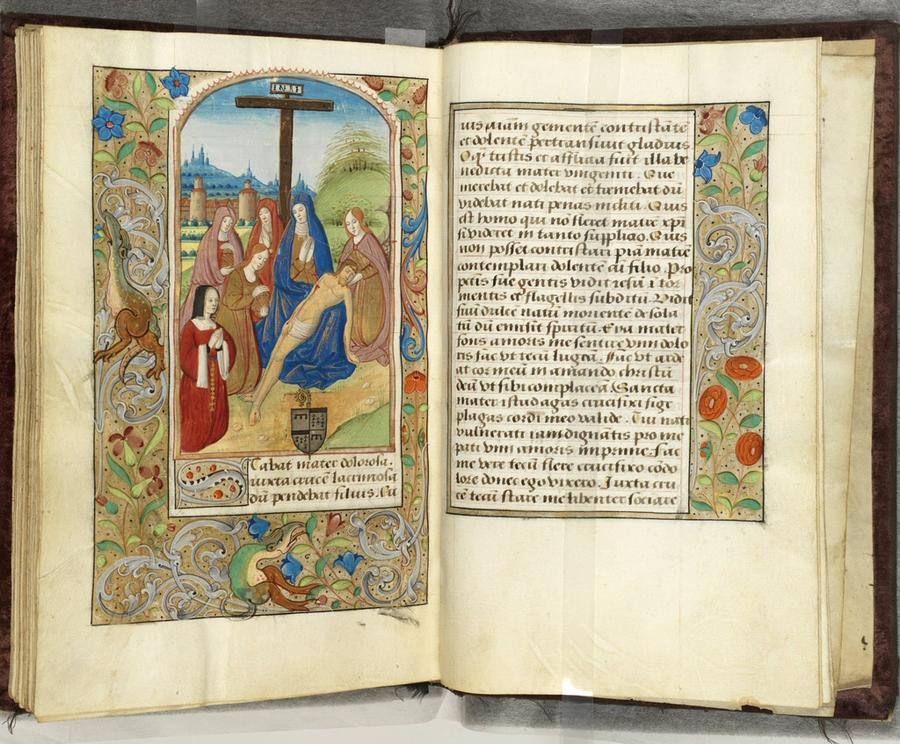 INRI
Stabat mater dolorosa.
iuxta crucē lacrimosa
dū pendebat filius. Cu
ius aīam gementē contristātē
et dolentē pertransiuit gladius
O q̄ tristis et afflicta fuit illa be
nedicta mater vnigeniti. Que
merebat et dolebat et tremebat dū
videbat nati penas incliti. Quis
est homo qui nō fleret matrē xp̄i
si videret in tanto supplicio. Quis
non posset contristari piā matrē
contemplari dolentē cū filio. Pro
peccatis sue gentis vidit iesū ī tor
mentis et flagellis subditū. Vidit
suū dulcē natū morientē desola
tū dū emisit spiritū. Eya mater
fons amoris me sentire vim dolo
ris fac vt tecū lugeā. Fac vt arde
at cor meū in amando christū
deū vt sibi complaceā. Sancta
mater istud agas crucifixi fige
plagas cordi meo valide. Tui nati
vulnerati iam dignatis pro me
pati vim amoris imprime. Fac
me vere tecū flere crucifixo cōdo
lore donec ego vixero. Iuxta cru
cē tecū stare me libenter sociare